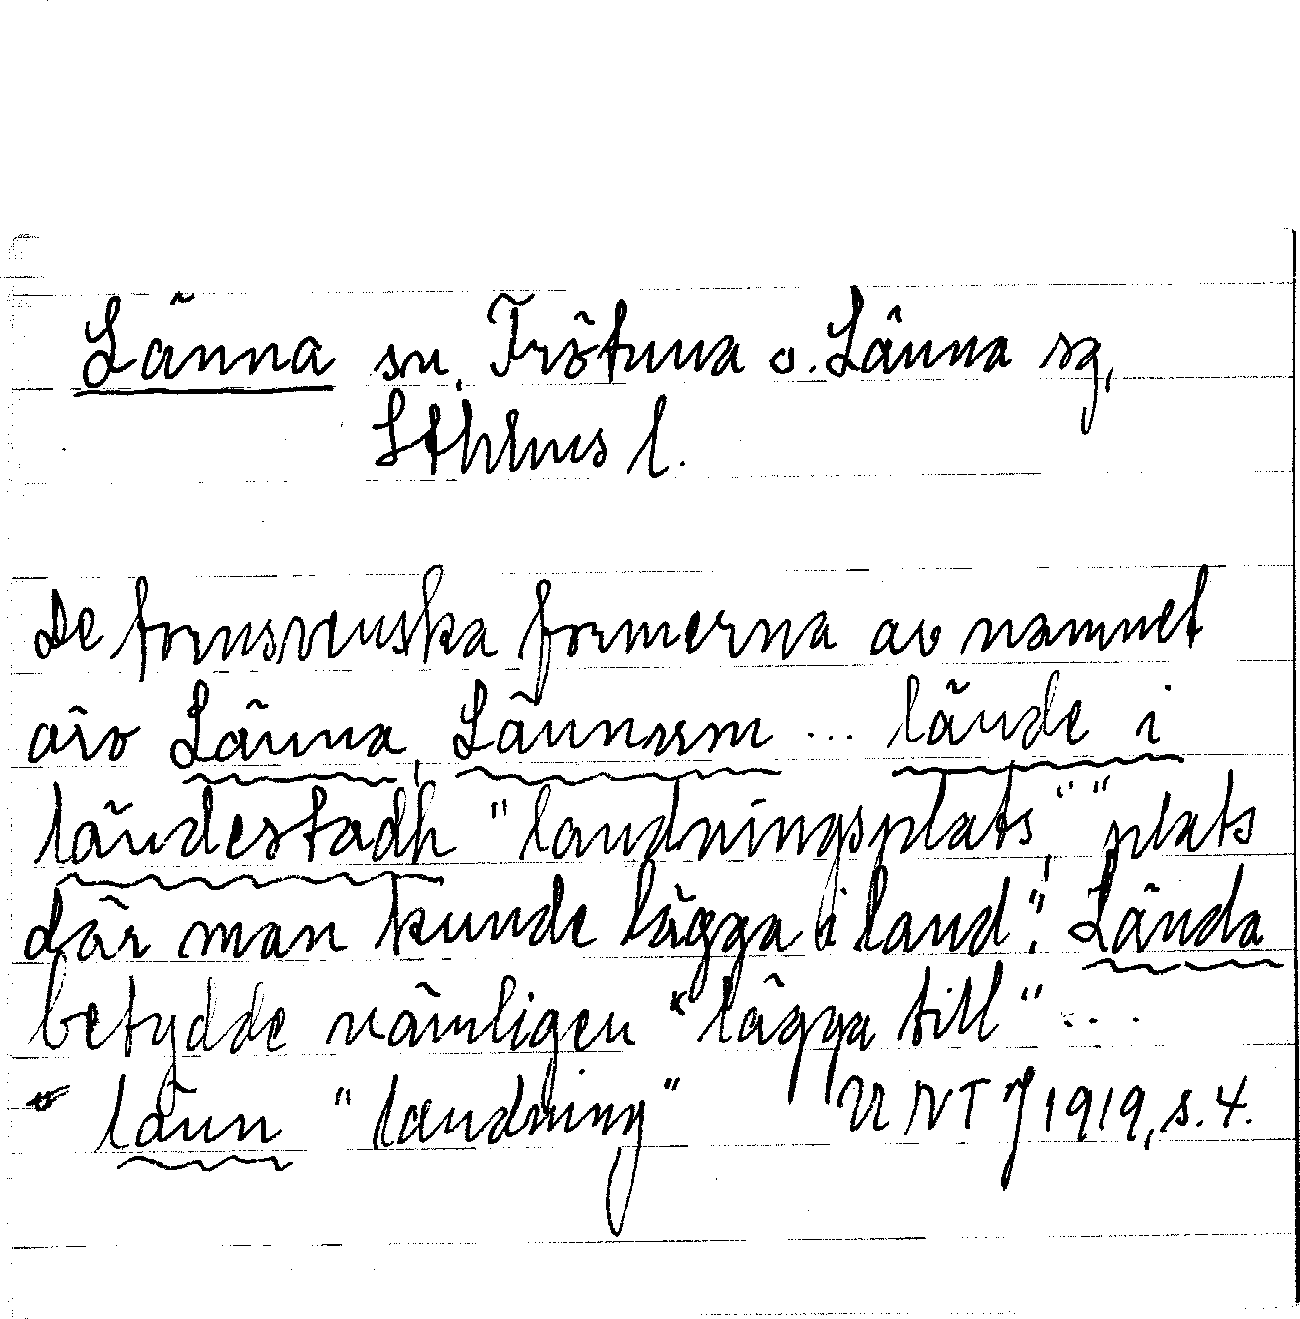 Länna sn, Frötuna o. Länna sg,
Sthlms l.
De fornsvenska formerna av namnet
äro Länna, Lännærm ... lände i
ländestadh "landningsplats", "plats
där man kunde lägga i land". Lända
betydde nämligen "lägga till" ...
* länn "landning" UNT J 1919, s. 4.